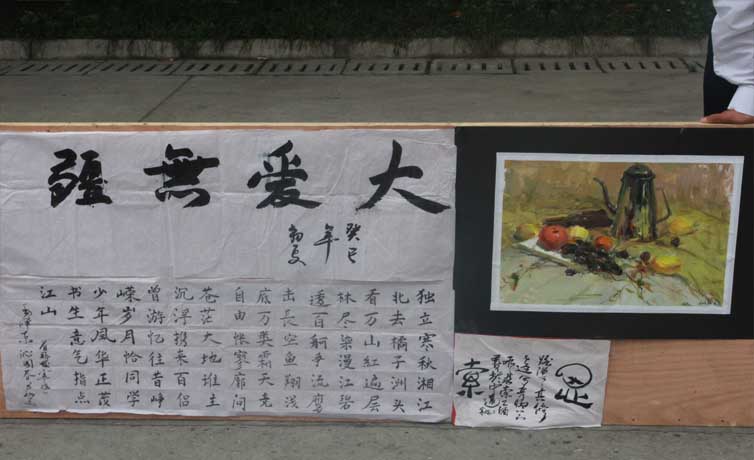 大爱無疆
癸巳
年
初夏
独立寒秋湘江
北去橘子洲头
看万山红遍层
林尽染漫江碧
透百舸争流鹰
击長空鱼翔浅
底万类霜天竞
自由怅寥廓问
苍茫大地谁主
沉浮携来百侣
曾游忆往昔峥
嵘岁月恰同学
少年风华正茂
书生意气指点
江山
毛泽东沁园春
索